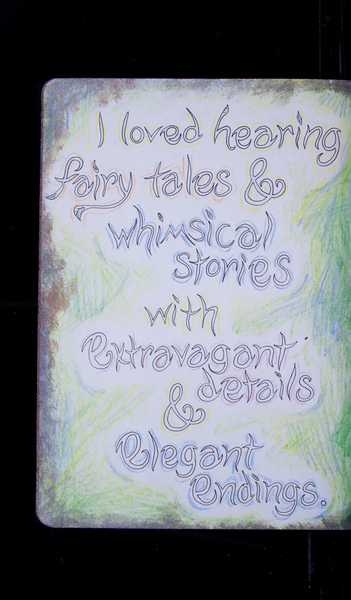 I loved hearing
fairy tales &
whimsical
stories
with
extravagant
details
&
elegant
endings.